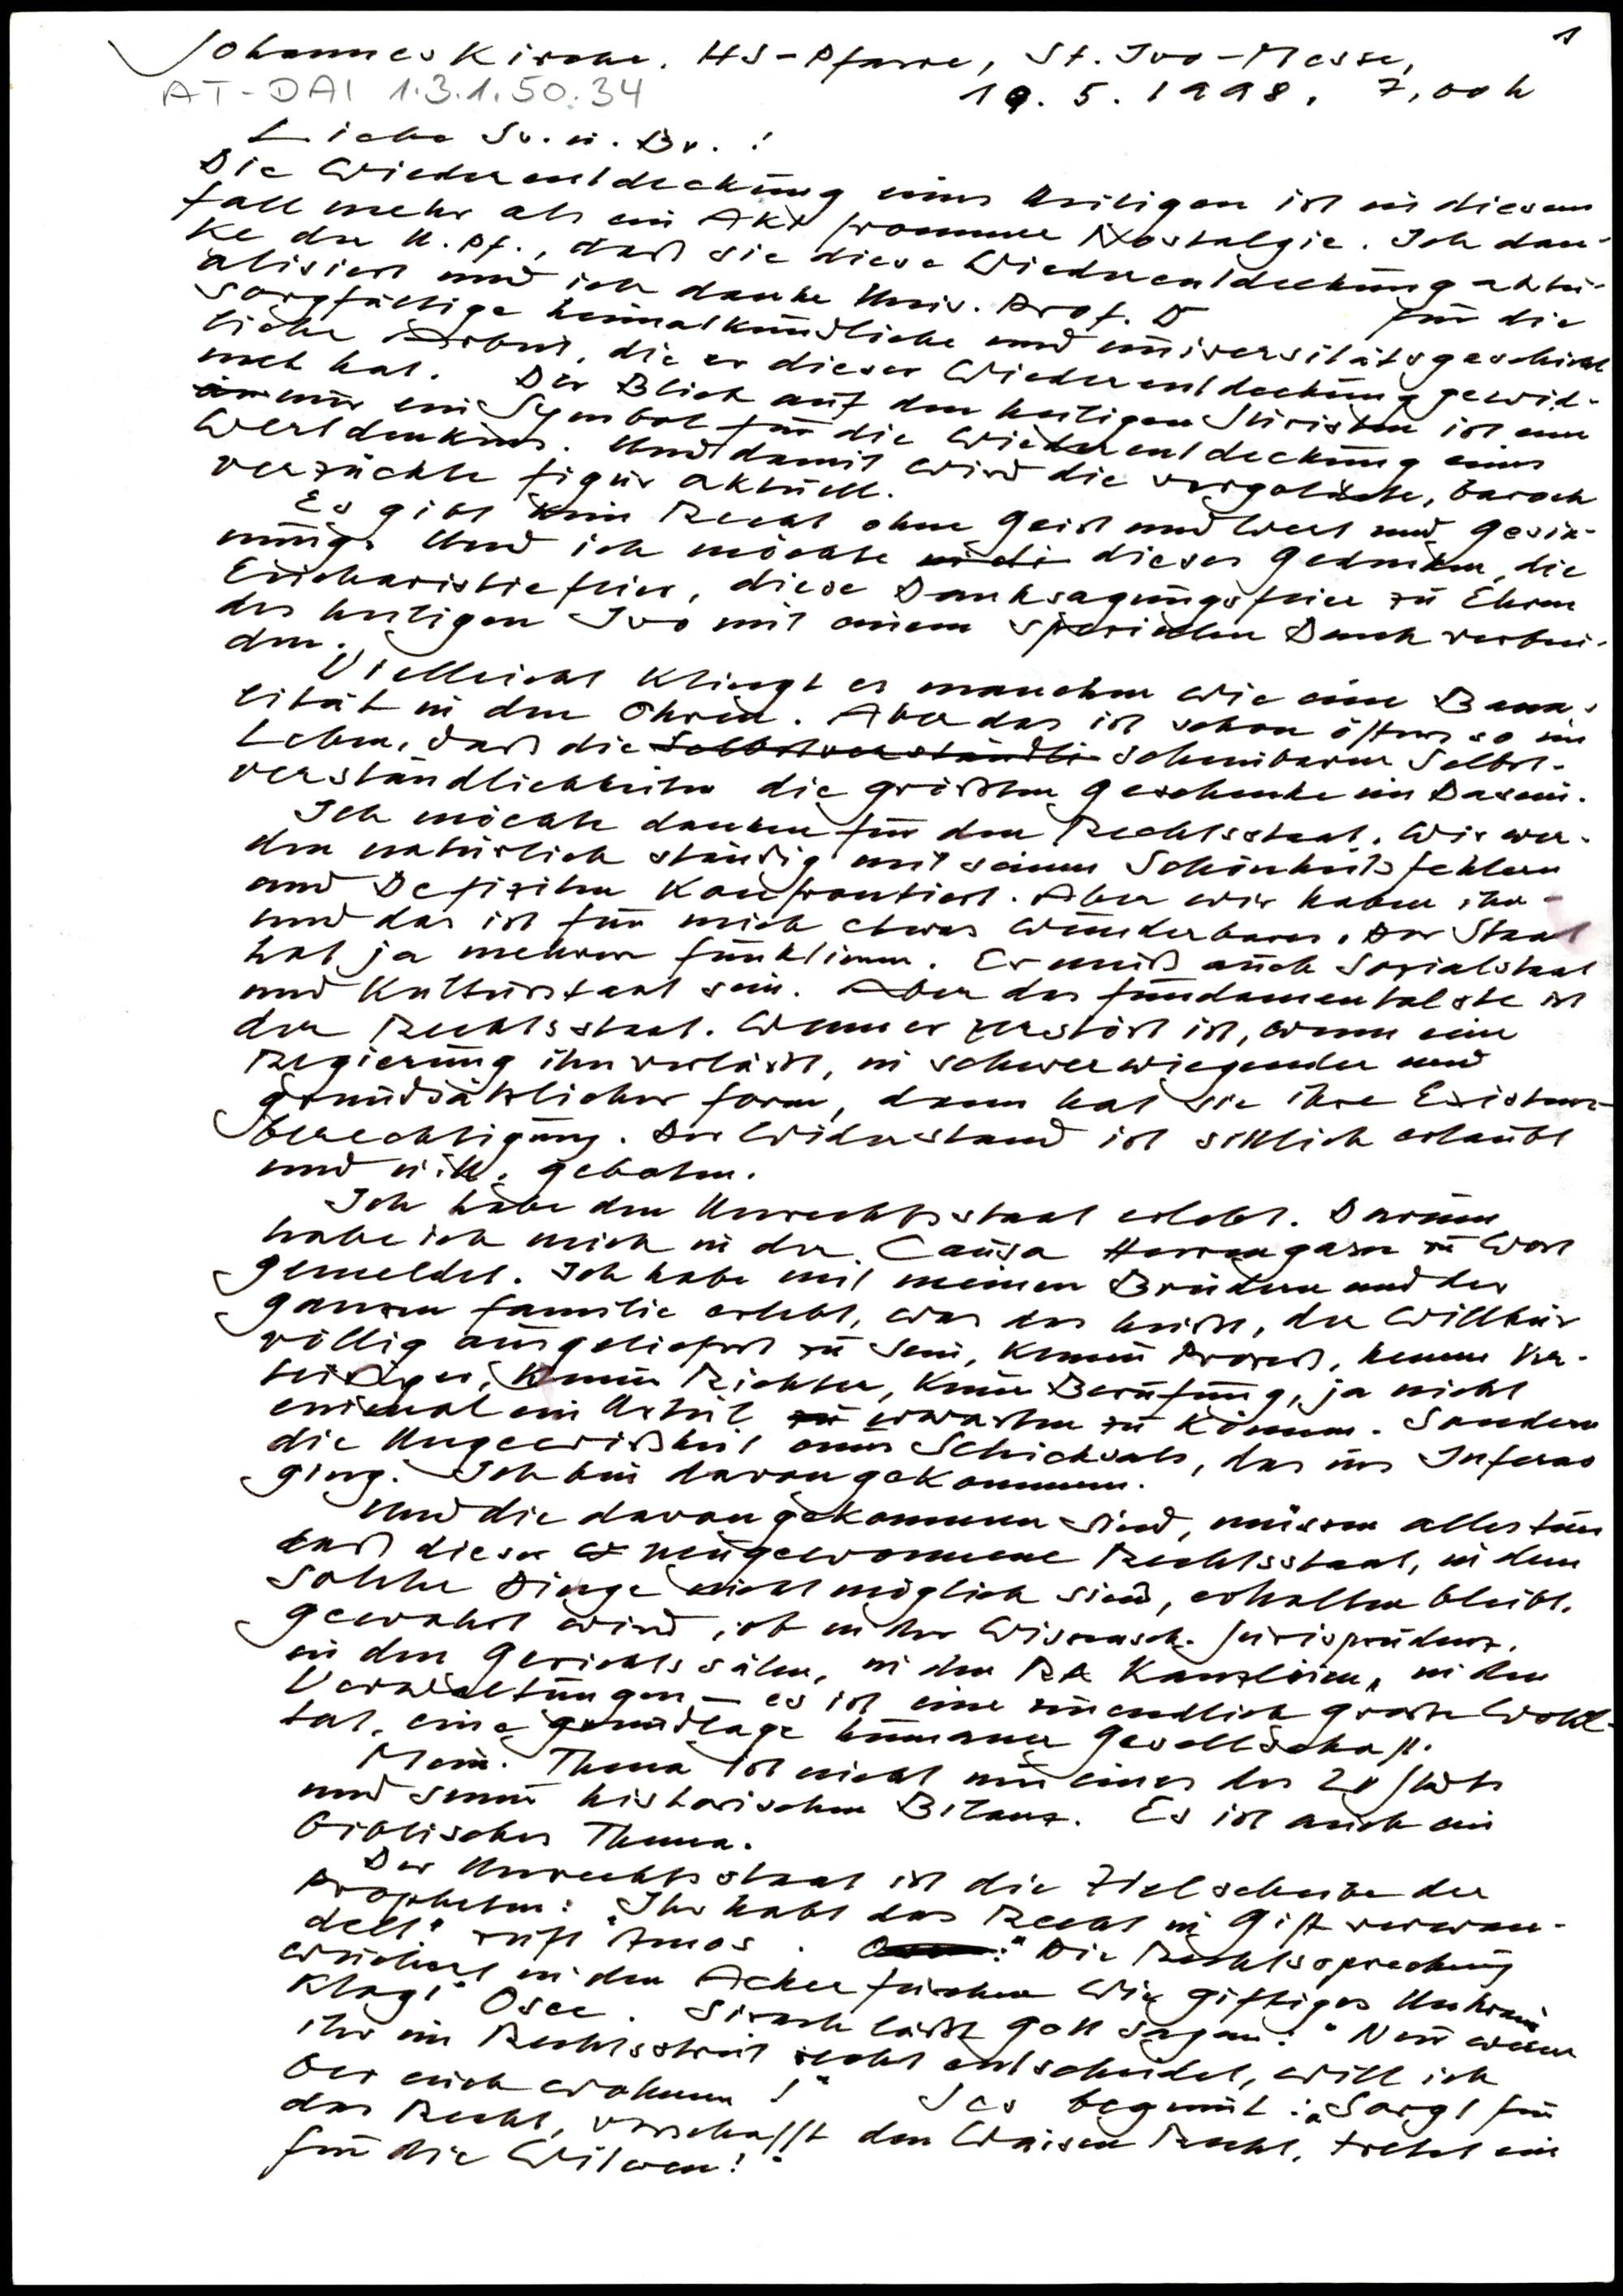 1
Johanneskirche. HS-Pfarre, St. Ivo-Messe,
AT-DAI 1.3.1.50.34 19. 5. 1998, 7,00 h
Liebe Sr. u. Br.!
Die Wiederentdeckung eines Heiligen ist in diesem
Fall mehr als ein Akt frommer Nostalgie. Ich dan-
ke der U.Pf., daß sie diese Wiederentdeckung aktu-
alisiert und ich danke Univ. Prof. D für die
sorgfältige heimatkundliche und universitätsgeschicht
liche Arbeit, die er dieser Wiederentdeckung gewid-
met hat. Der Blick auf den heiligen Juristen ist
nur ein Symbol für die Wiederentdeckung eines
Wertdenkens. Und damit wird die vergoldete, barock
verzückte Figur aktuell.
Es gibt kein Recht ohne Geist und Wert und Gesin-
nung. Und ich möchte diesen Gedanken, die
Eucharistiefeier, diese Danksagungsfeier zu Ehren
des heiligen Ivo mit einem speziellen Dank verbin-
den.
Vielleicht klingt es manchem wie eine Bana-
lität in den Ohren. Aber das ist schon öfters so im
Leben, daß die Selbstverständli scheinbaren Selbst-
verständlichkeiten die größten Geschenke im Dasein.
Ich möchte danken für den Rechtsstaat. Wir wer-
den natürlich ständig mit seinen Schönheitsfehlern
und Defiziten konfrontiert. Aber wir haben ihn -
und das ist für mich etwas Wunderbares. Der Staat
hat ja mehrere Funktionen. Er muß auch Sozialstaat
und Kulturstaat sein. Aber das fundamentalste ist
der Rechtsstaat. Wenn er zerstört ist, wenn eine
Regierung ihn verläßt, in schwerwiegender und
grundsätzlicher Form, dann hat sie ihre Existenz-
berechtigung. Der Widerstand ist sittlich erlaubt
und u. U. geboten.
Ich habe den Unrechtsstaat erlebt. Darum
habe ich mich in der Causa Herrengasse zu Wort
gemeldet. Ich habe mit meinen Brüdern und der
ganzen Familie erlebt, was das heißt, der Willkür
völlig ausgeliefert zu sein, keinen Prozeß, keinen Ver-
teidiger, keinen Richter, keine Berufung, ja nicht
einmal ein Urteil zu erwarten zu können. Sondern
die Ungewißheit eines Schicksals, das ins Inferno
ging. Ich bin davongekommen.
Und die davongekommen sind, müssen alles tun
daß dieser neugewonnene Rechtsstaat, in dem
solche Dinge nicht möglich sind, erhalten bleibt.
gewahrt wird, ob in der Wissensch. Jurisprudenz.
in den Gerichtssälen, in den RA Kanzleien, in den
Verwaltungen — es ist eine unendlich große Wohl-
tat, eine Grundlage humaner Gesellschaft.
Mein Thema ist nicht nur eines des 20 Jhdts
und seiner historischen Bilanz. Es ist auch ein
biblisches Thema.
Der Unrechtsstaat ist die Zielscheibe der
Propheten: "Ihr habt das Recht in Gift verwan-
delt" ruft Amos. "Die Rechtssprechung
wuchert in den Ackerfurchen wie giftiges Unkraut"
klagt Osee. Sirach läßt Gott sagen: "Nur wenn
ihr im Rechtsstreit recht entscheidet, will ich
bei euch wohnen!" Jes beginnt: "Sorgt für
das Recht, verschafft den Waisen Recht, tretet ein
für die Witwen!"